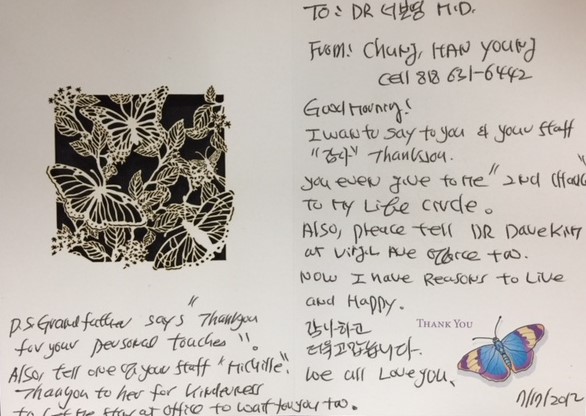 To: DR M.D.
From: Chung, HAN YOUNG
Cell 818 631-6442
Good Morning!
I want to say to you & your staff
"감사" Thank you.
you even give to me "2nd
to My Life Circle.
Also, please tell DR Dave Kim
at Virgil Ave office too.
Now I have Reasons to Live
and Happy.
감사하고
THANK YOU
We all Love you.
P.S. Grand father says "Thank you
for your personal touches".
Also, tell one of your staff "Michille".
Thank you to her for kindness
to let me stay at office to wait for you too.